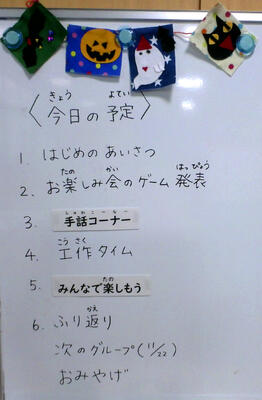 きょう よてい
〈今日の予定〉
1. はじめのあいさつ
たの かい はっぴょう
2. お楽しみ会のゲーム発表
しゅわこーなー
3. 手話コーナー
こう さく
4. 工作タイム
たの
5. みんなで楽しもう
かえ
6. ふり返り
次のグループ(11/22)
おみやげ